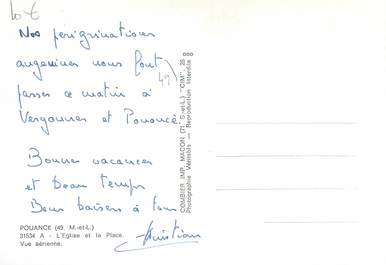 Nos pérégrinations
angevines nous font
passer ce matin à
Vergonnes et Pouancé.
Bonnes vacances
et beau temps
Bons baisers à tous
Christian
49
POUANCE (49. M.-et-L.)
31534 A - L'Eglise et la Place.
Vue aérienne.
COMBIER IMP. MACON (71. S.-et-L.) "CIM"
Photographie Véritable — Reproduction Interdite